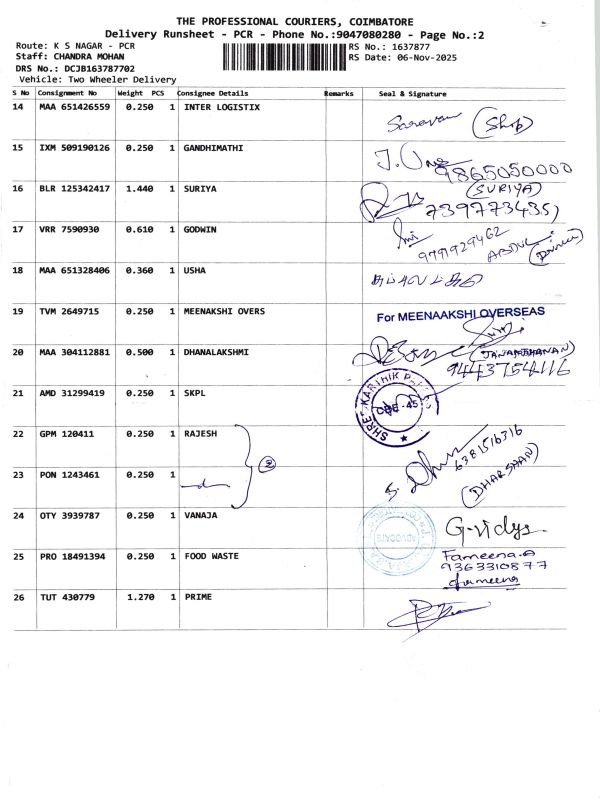 THE PROFESSIONAL COURIERS, COIMBATORE
Delivery Runsheet - PCR - Phone No.:9047080280 - Page No.:2
Route: K S NAGAR - PCR
RS No.: 1637877
Staff: CHANDRA MOHAN
RS Date: 06-Nov-2025
DRS No.: DCJB163787702
Vehicle: Two Wheeler Delivery
S No Consignment No Weight PCS Consignee Details Remarks Seal & Signature
14 MAA 651426559 0.250 1 INTER LOGISTIX
Saravan (Shop)
15 IXM 509190126 0.250 1 GANDHIMATHI
9865050000
16 BLR 125342417 1.440 1 SURIYA
(SURIYA)
7397734351
17 VRR 7590930 0.610 1 GODWIN
9791929462
ABDUL (Driver)
18 MAA 651328406 0.360 1 USHA
19 TVM 2649715 0.250 1 MEENAKSHI OVERS
For MEENAAKSHI OVERSEAS
20 MAA 304112881 0.500 1 DHANALAKSHMI
(JANARTHANAN)
9443754116
21 AMD 31299419 0.250 1 SKPL
SHREE KARTHIK
CBE-45
22 GPM 120411 0.250 1 RAJESH
2
6381516316
23 PON 1243461 0.250 1
S. Dhar
(DHARSAAN)
24 OTY 3939787 0.250 1 VANAJA
ADVOCATE
G-Vidya
25 PRO 18491394 0.250 1 FOOD WASTE
Fameena.A
9363310877
fameena
26 TUT 430779 1.270 1 PRIME